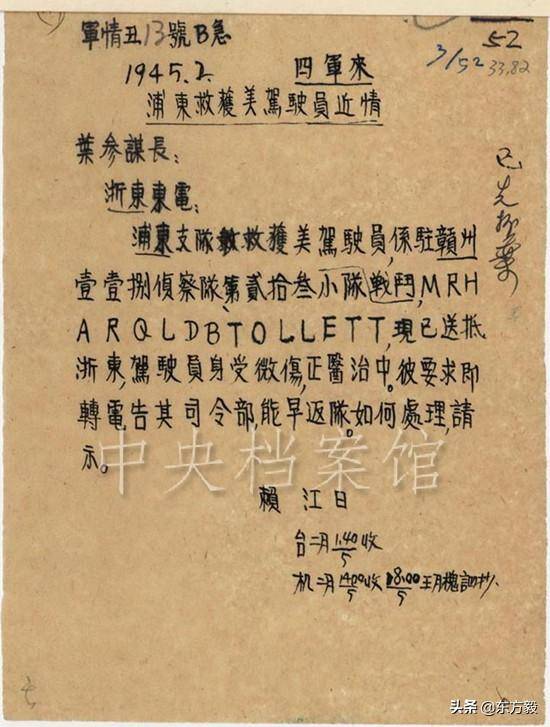 軍情丑13號B急
52
3/52 33.82
1945.2. 四軍來
浦東救獲美駕駛員近情
葉參謀長:
浙東東電:
浦東支隊救獲美駕駛員,係駐贛州
壹壹捌偵察隊、第貳拾叁小隊戰鬥,MRH
ARQLDBTOLLETT,現已送抵
浙東,駕駛員身受微傷,正醫治中。彼要求即
轉電告其司令部,能早返隊。如何處理,請
示。
賴 江日
台二月1.40/5收
机二月1400/5收18:00/5
中央档案馆
头条@东方毅